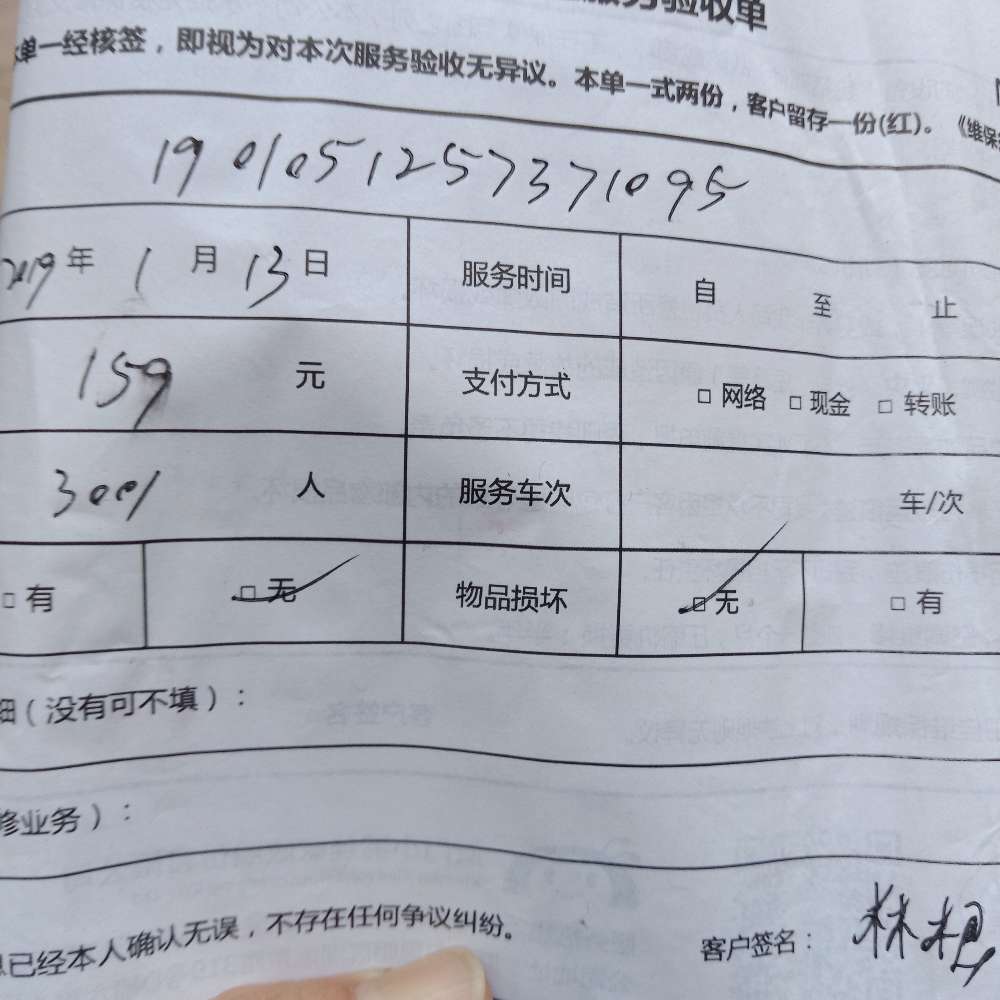 服务验收单
单一经核签，即视为对本次服务验收无异议。本单一式两份，客户留存一份(红)。《维保
1901051257371095
2019年 1月 13日 服务时间 自 至 止
159 元 支付方式 □ 网络 □ 现金 □ 转账
3001 人 服务车次 车/次
□ 有 □ 无 物品损坏 □ 无 □ 有
细（没有可不填）：
修业务）：
息已经本人确认无误，不存在任何争议纠纷。
客户签名： 林